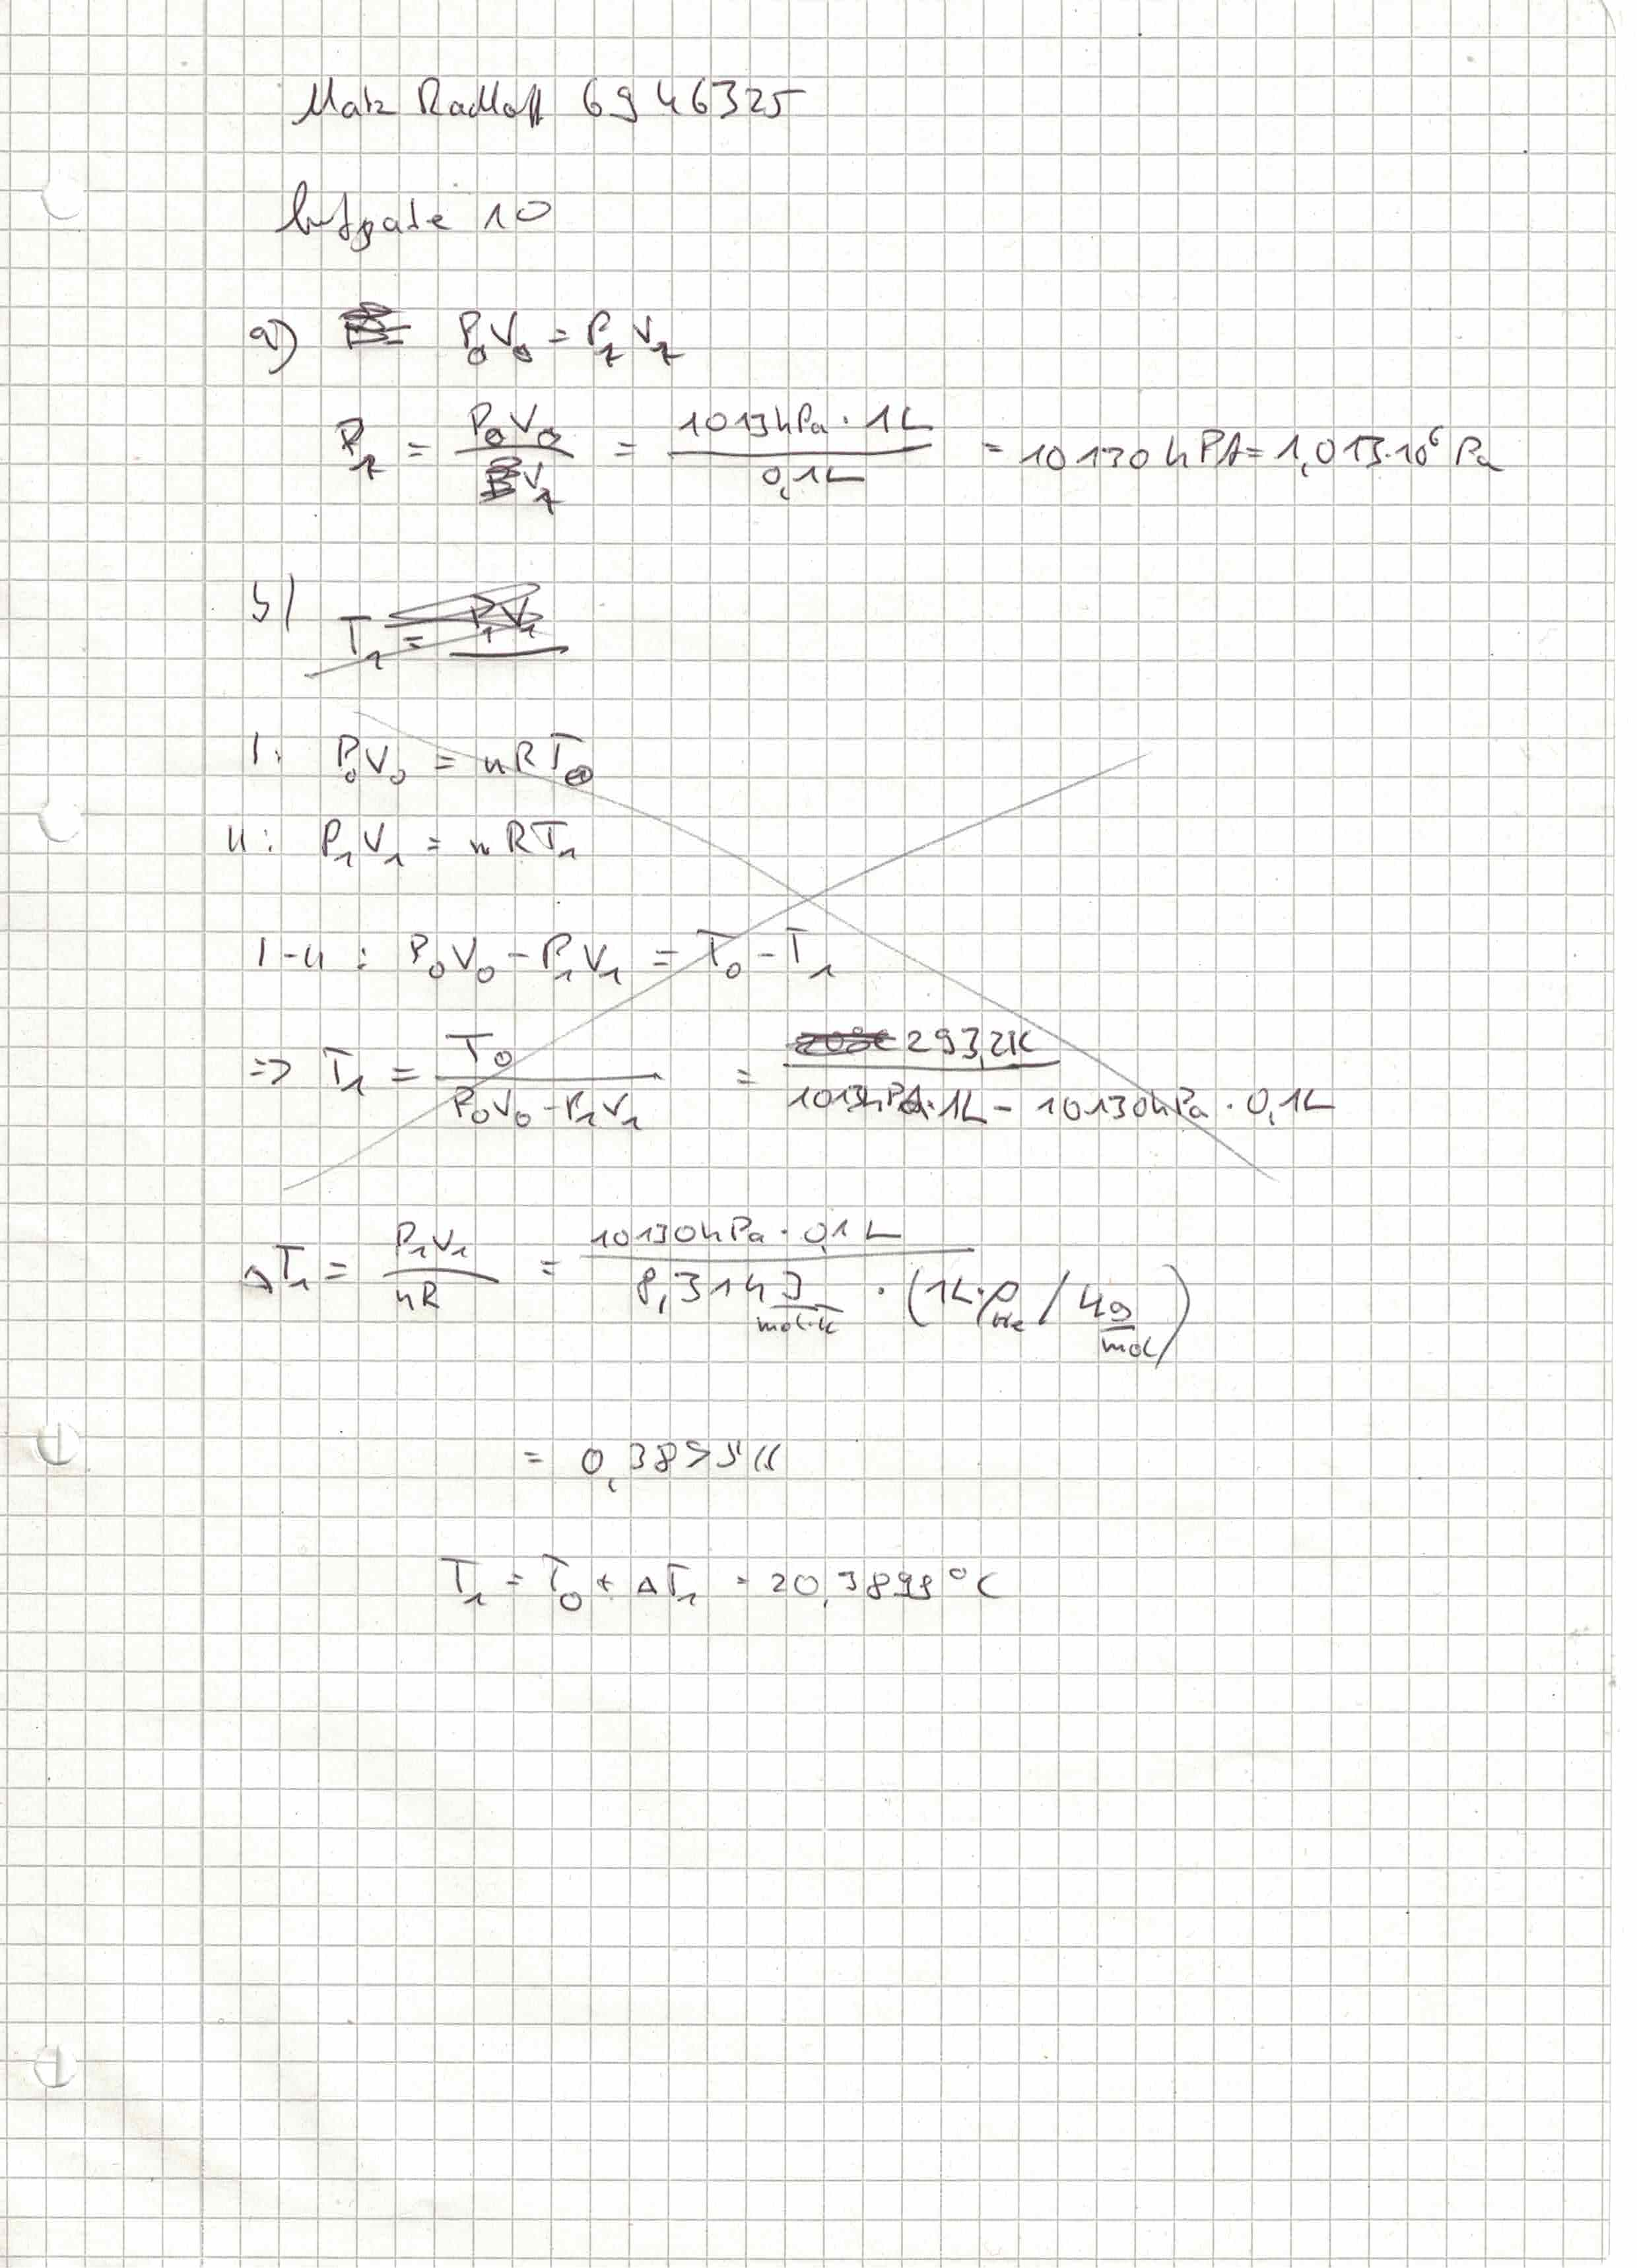 Matz Radloff 6946325
Aufgabe 10
a) P₀V₀ = P₁V₁
P₁ = P₀V₀ / V₁ = 1013hPa · 1L / 0,1L = 10130 hPA = 1,013·10⁶ Pa
b) T₁ = P₁V₁
I: P₀V₀ = nRT₀
II: P₁V₁ = nRT₁
I-II: P₀V₀ - P₁V₁ = T₀ - T₁
=> T₁ = T₀ / (P₀V₀ - P₁V₁) = 293,2K / (1013hPa·1L - 10130hPa · 0,1L)
ΔT₁ = P₁V₁ / nR = 10130hPa · 0,1L / (8,314 J/mol·K · (1L·ρHe / 4 g/mol))
= 0,3895K
T₁ = T₀ + ΔT₁ = 20,3899°C